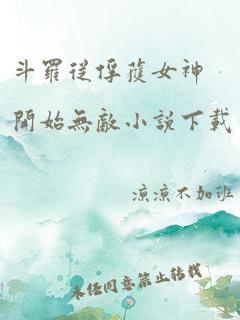 斗羅從俘獲女神
開始無敵小說下載
涼涼不加班
未經同意禁止轉載